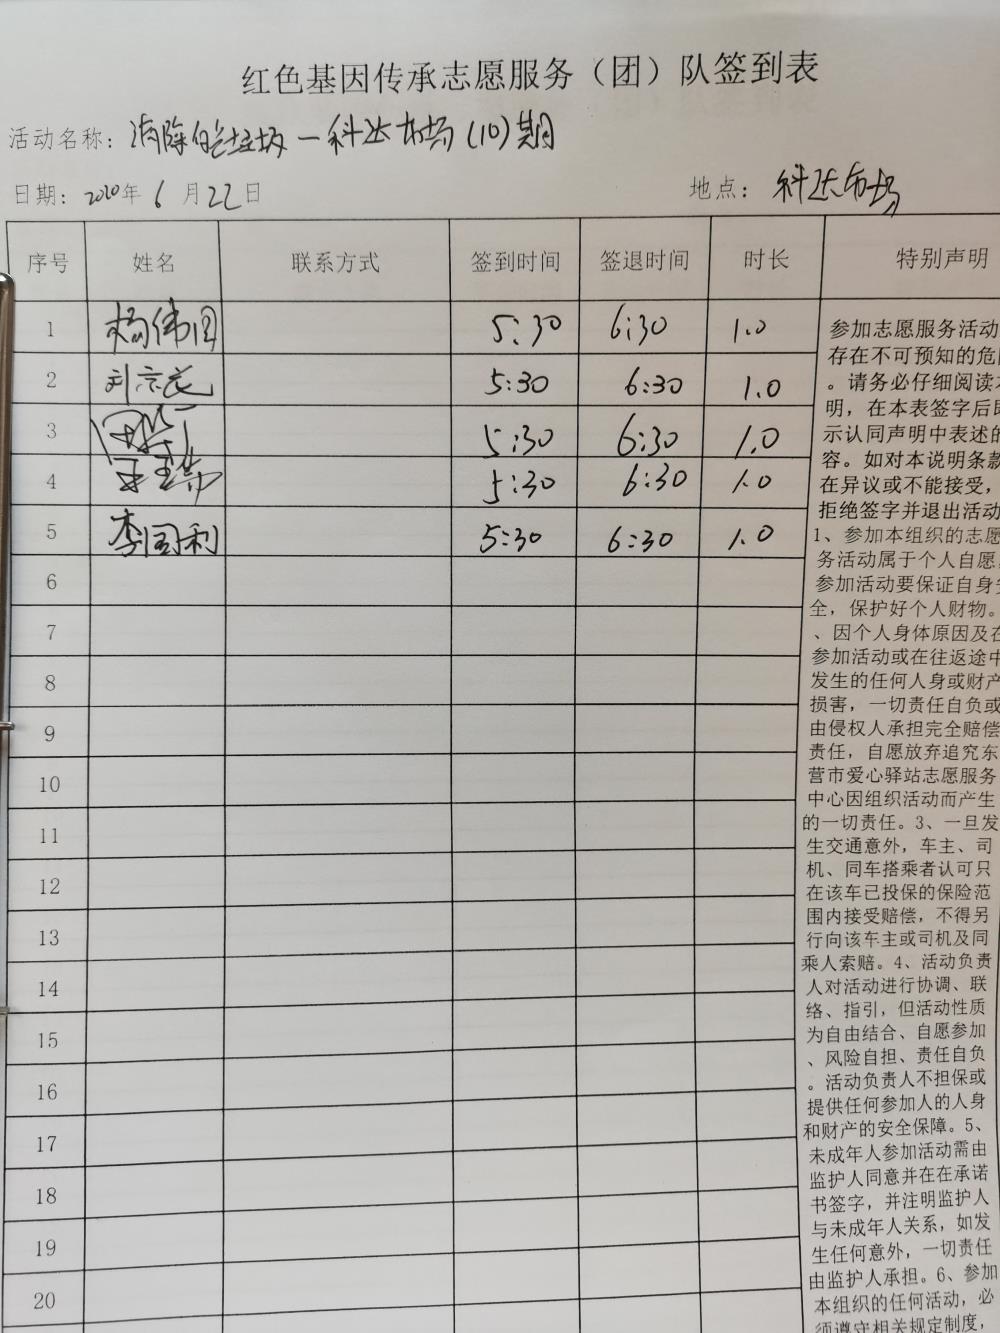 红色基因传承志愿服务（团）队签到表
活动名称：消除白色垃圾一科达市场（10）期
日期：2020年6月22日 地点：科达市场
序号 姓名 联系方式 签到时间 签退时间 时长 特别声明
1 杨伟国 5:30 6:30 1.0
2 刘京花 5:30 6:30 1.0
3 5:30 6:30 1.0
4 5:30 6:30 1.0
5 李国利 5:30 6:30 1.0
6
7
8
9
10
11
12
13
14
15
16
17
18
19
20
参加志愿服务活动
存在不可预知的危
。请务必仔细阅读
明，在本表签字后即
示认同声明中表述的
容。如对本说明条款
在异议或不能接受，
拒绝签字并退出活动
1、参加本组织的志愿
务活动属于个人自愿，
参加活动要保证自身
全，保护好个人财物。
、因个人身体原因及在
参加活动或在往返途中
发生的任何人身或财产
损害，一切责任自负或
由侵权人承担完全赔偿
责任，自愿放弃追究东
营市爱心驿站志愿服务
中心因组织活动而产生
的一切责任。3、一旦发
生交通意外，车主、司
机、同车搭乘者认可只
在该车已投保的保险范
围内接受赔偿，不得另
行向该车主或司机及同
乘人索赔。4、活动负责
人对活动进行协调、联
络、指引，但活动性质
为自由结合、自愿参加
、风险自担、责任自负
。活动负责人不担保或
提供任何参加人的人身
和财产的安全保障。5、
未成年人参加活动需由
监护人同意并在在承诺
书签字，并注明监护人
与未成年人关系，如发
生任何意外，一切责任
由监护人承担。6、参加
本组织的任何活动，必
须遵守相关规定制度，